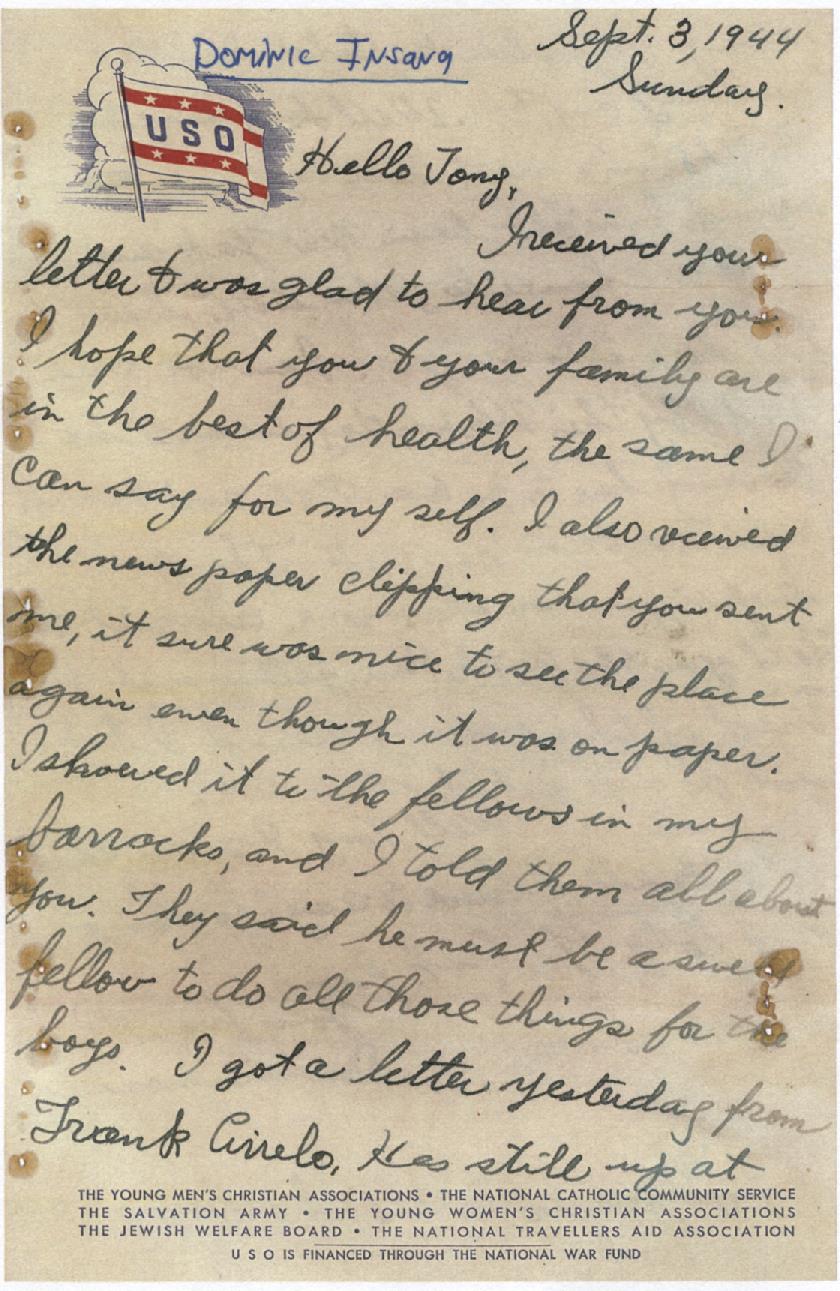 Dominic Insana
Sept. 3, 1944
Sunday.
USO
Hello Tony,
I received your
letter & was glad to hear from you.
I hope that you & your family are
in the best of health, the same I
can say for my self. I also rceived
the news paper clipping that you sent
me, it sure was nice to see the place
again even though it was on paper.
I showed it to the fellows in my
barrocks, and I told them all about
you. They said he must be a swell
fellow to do all those things for the
boys. I got a letter yesterday from
Frank Cirrelo, Hes still up at
THE YOUNG MEN'S CHRISTIAN ASSOCIATIONS • THE NATIONAL CATHOLIC COMMUNITY SERVICE
THE SALVATION ARMY • THE YOUNG WOMEN'S CHRISTIAN ASSOCIATIONS
THE JEWISH WELFARE BOARD • THE NATIONAL TRAVELLERS AID ASSOCIATION
USO IS FINANCED THROUGH THE NATIONAL WAR FUND